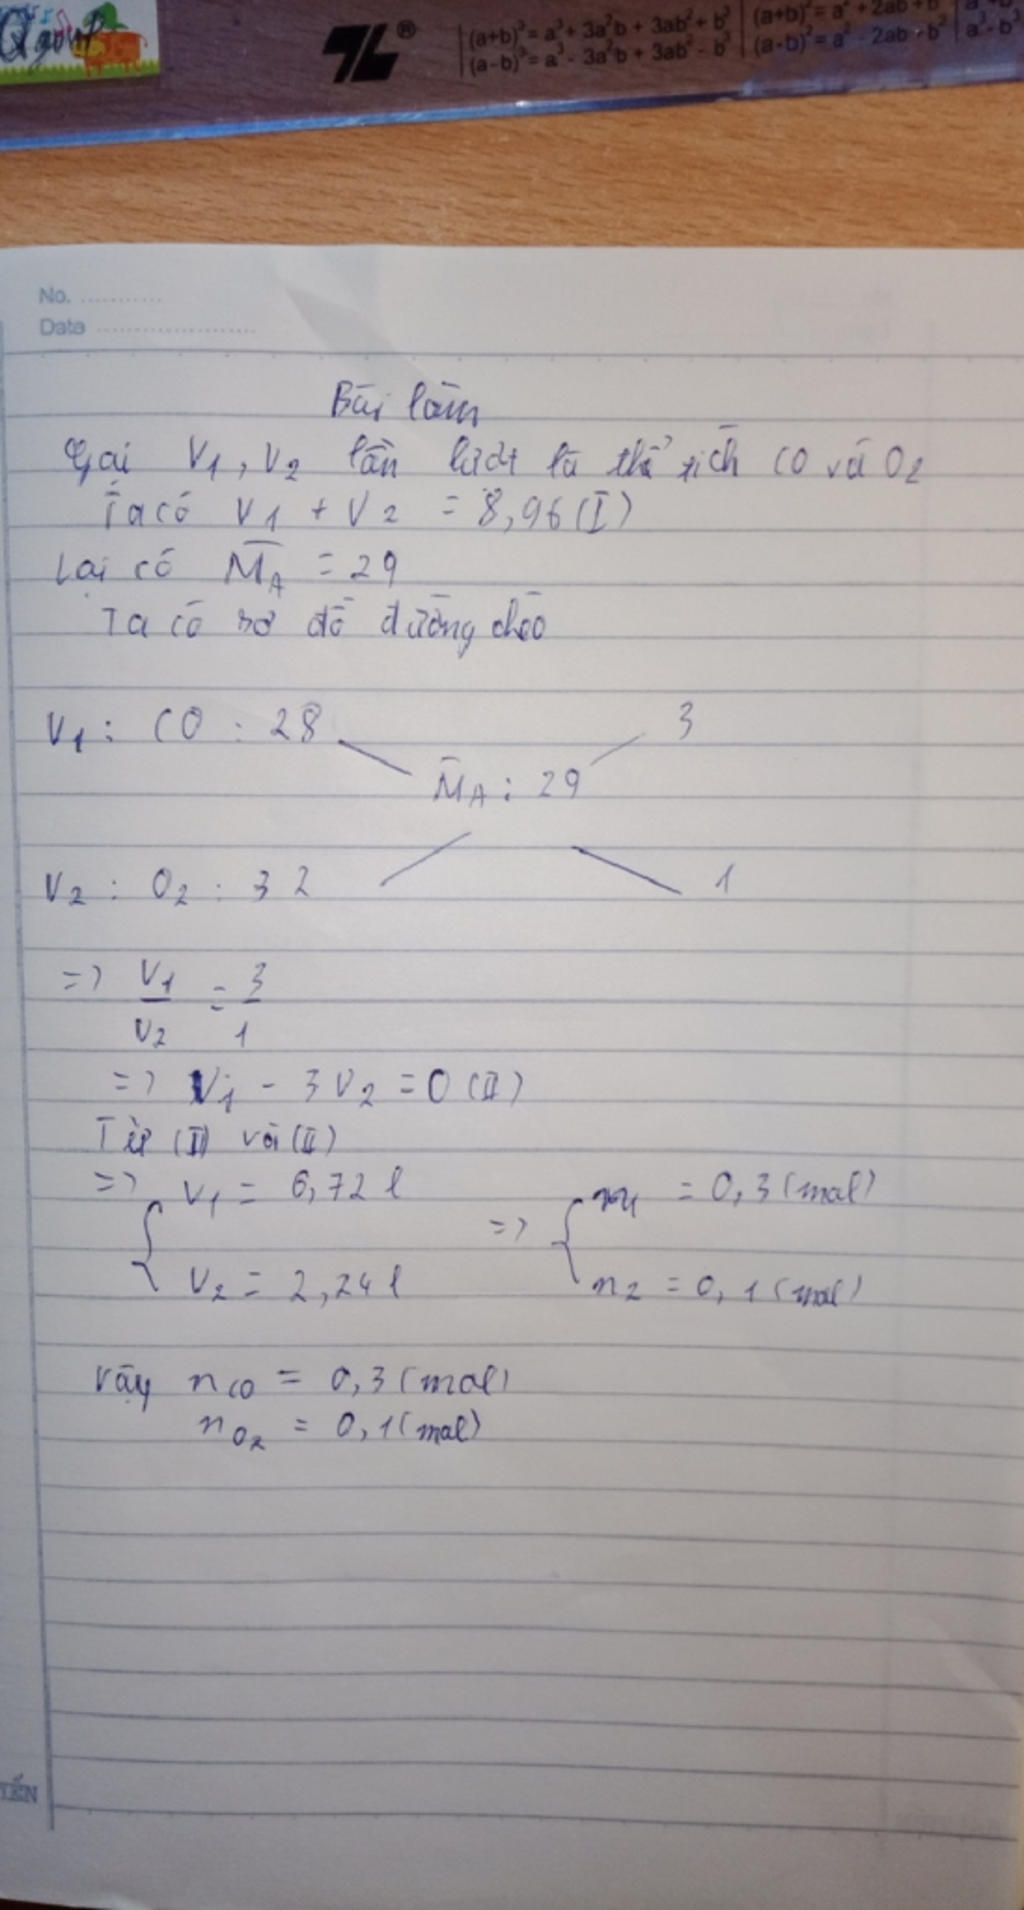 Qgroup
TL®
(a+b)³ = a³ + 3a²b + 3ab² + b³
(a-b)³ = a³ - 3a²b + 3ab² - b³
(a+b)² = a² + 2ab + b
(a-b)² = a² - 2ab + b²
a³ - b³
No. ...........
Data .....................
Bài làm
Gọi V₁, V₂ lần lượt là thể tích CO và O₂
Ta có V₁ + V₂ = 8,96 (I)
Lại có M̄_A = 29
Ta có sơ đồ đường chéo
V₁ : CO : 28 3
M̄_A : 29
V₂ : O₂ : 32 1
=> V₁/V₂ = 3/1
=> V₁ - 3V₂ = 0 (II)
Từ (I) và (II)
=> { V₁ = 6,72 l => { n₁ = 0,3 (mol)
V₂ = 2,24 l n₂ = 0,1 (mol)
Vậy n_CO = 0,3 (mol)
n_O₂ = 0,1 (mol)
IẾN